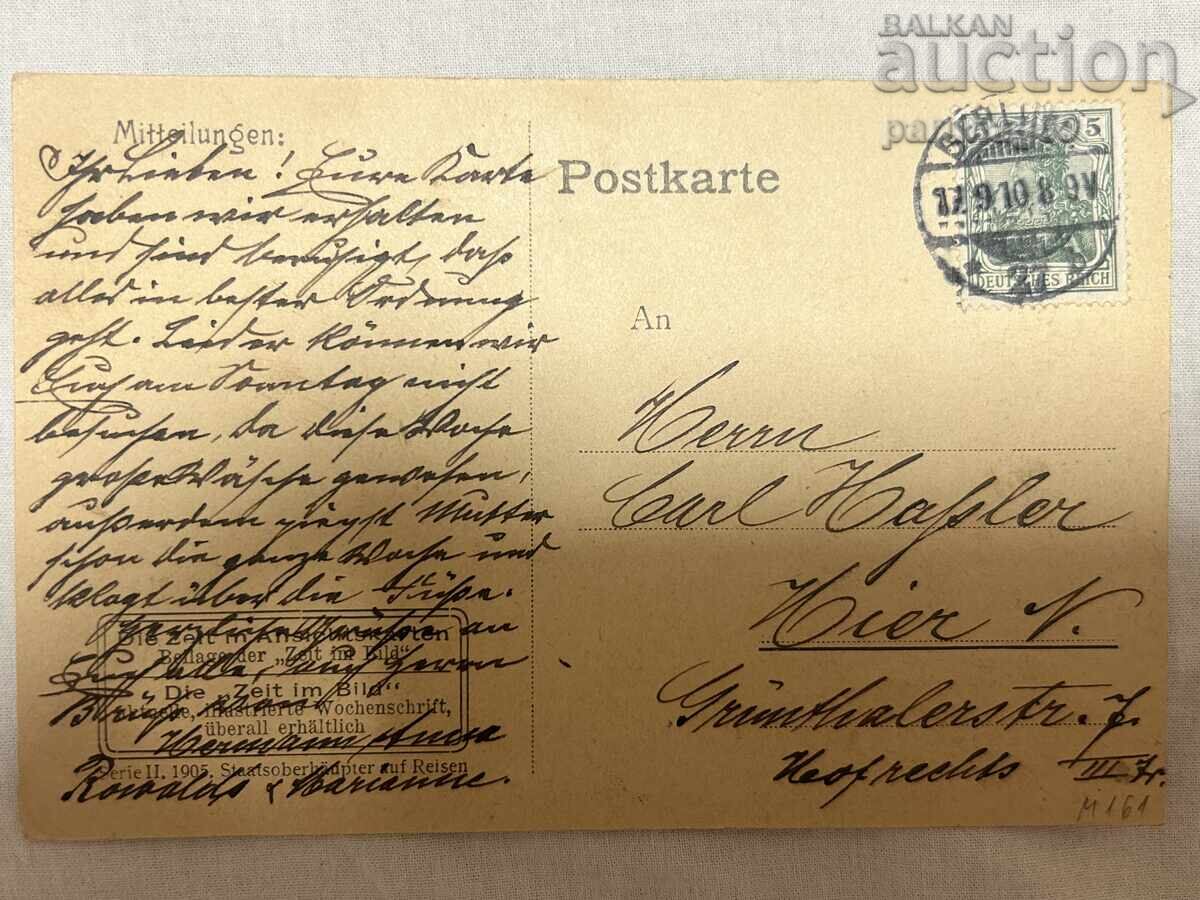 BALKAN
auction
Mitteilungen:
Ihr Lieben! Eure Karte
haben wir erhalten
und sind beruhigt, daß
alles in bester Ordnung
geht. Leider können wir
Euch am Sonntag nicht
besuchen, da diese Woche
große Wäsche gewesen,
außerdem Mutter
schon die ganze Woche und
klagt über die Füße.
Herzliche Grüße an
Euch alle, auch Herrn
Hermann Anna
& Marianne.
Die Zeit in Ansichtskarten
Beilage der „Zeit im Bild“
Die „Zeit im Bild“
Aktuelle, illustrierte Wochenschrift,
überall erhältlich
Serie II. 1905. Staatsoberhäupter auf Reisen
Postkarte
BERLIN
17.9.10.8-9V
5
DEUTSCHES REICH
An
Herrn
Carl Haßler
Hier N.
Grünthalerstr. 7.
Hof rechts III Tr.
M 161